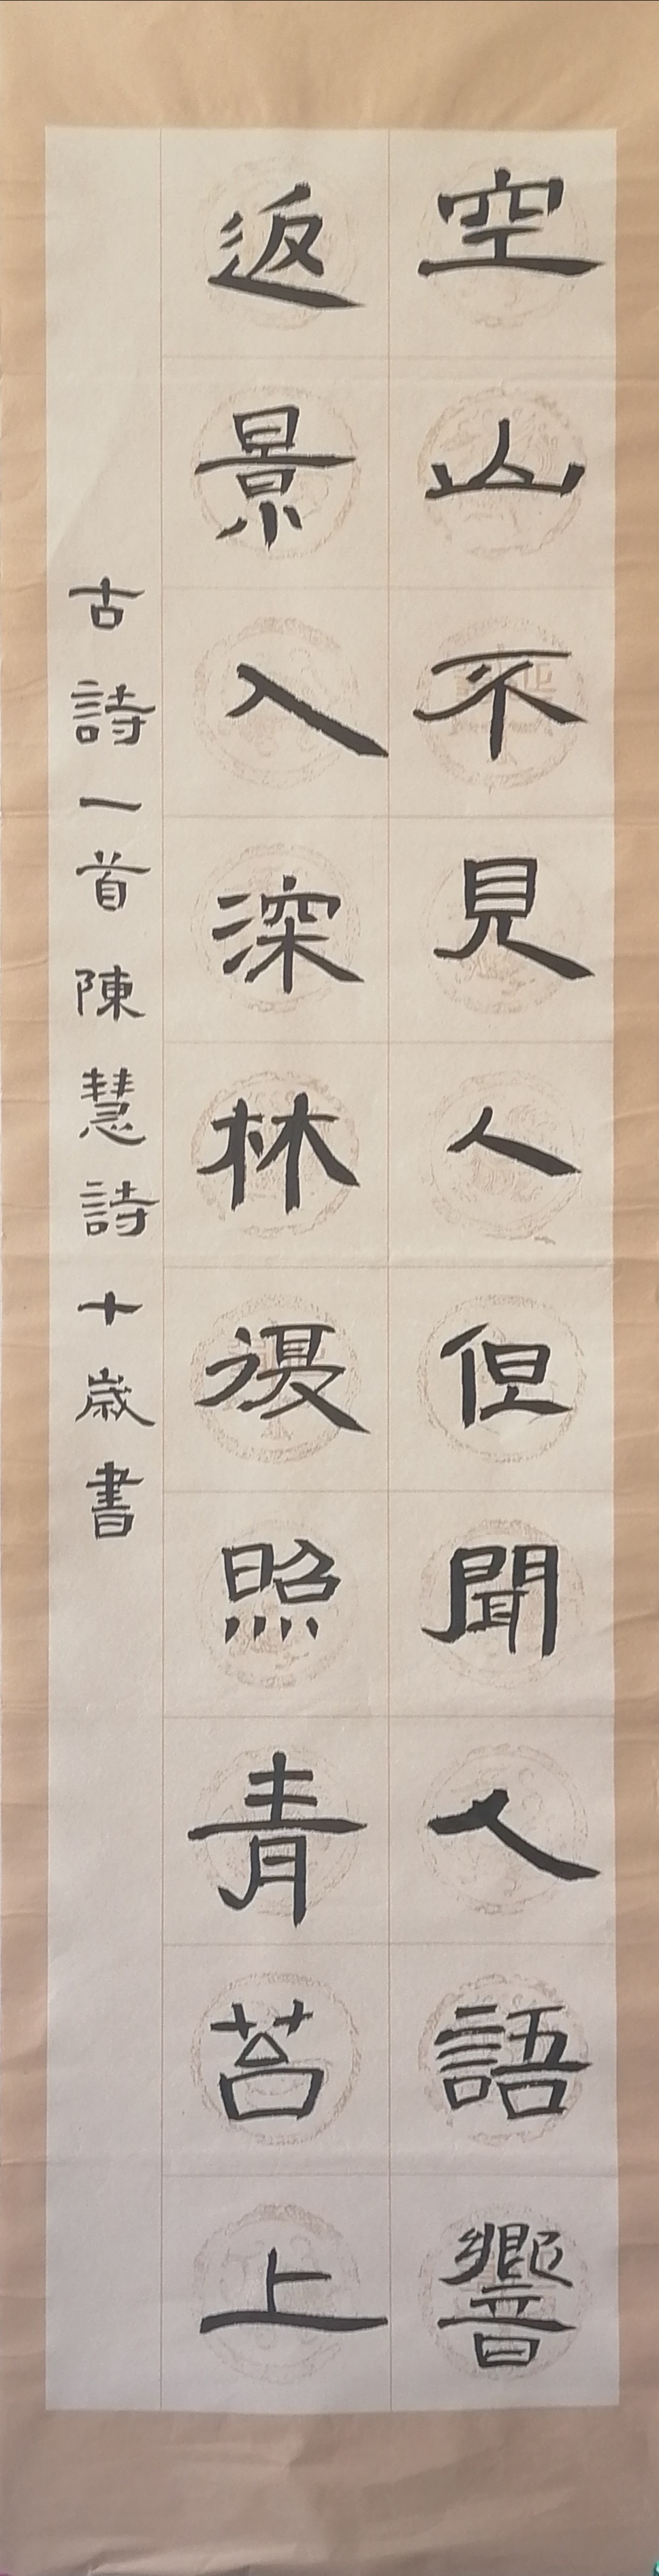 空山不見人但聞人語響
返景入深林復照青苔上
古詩一首陳慧詩十歲書